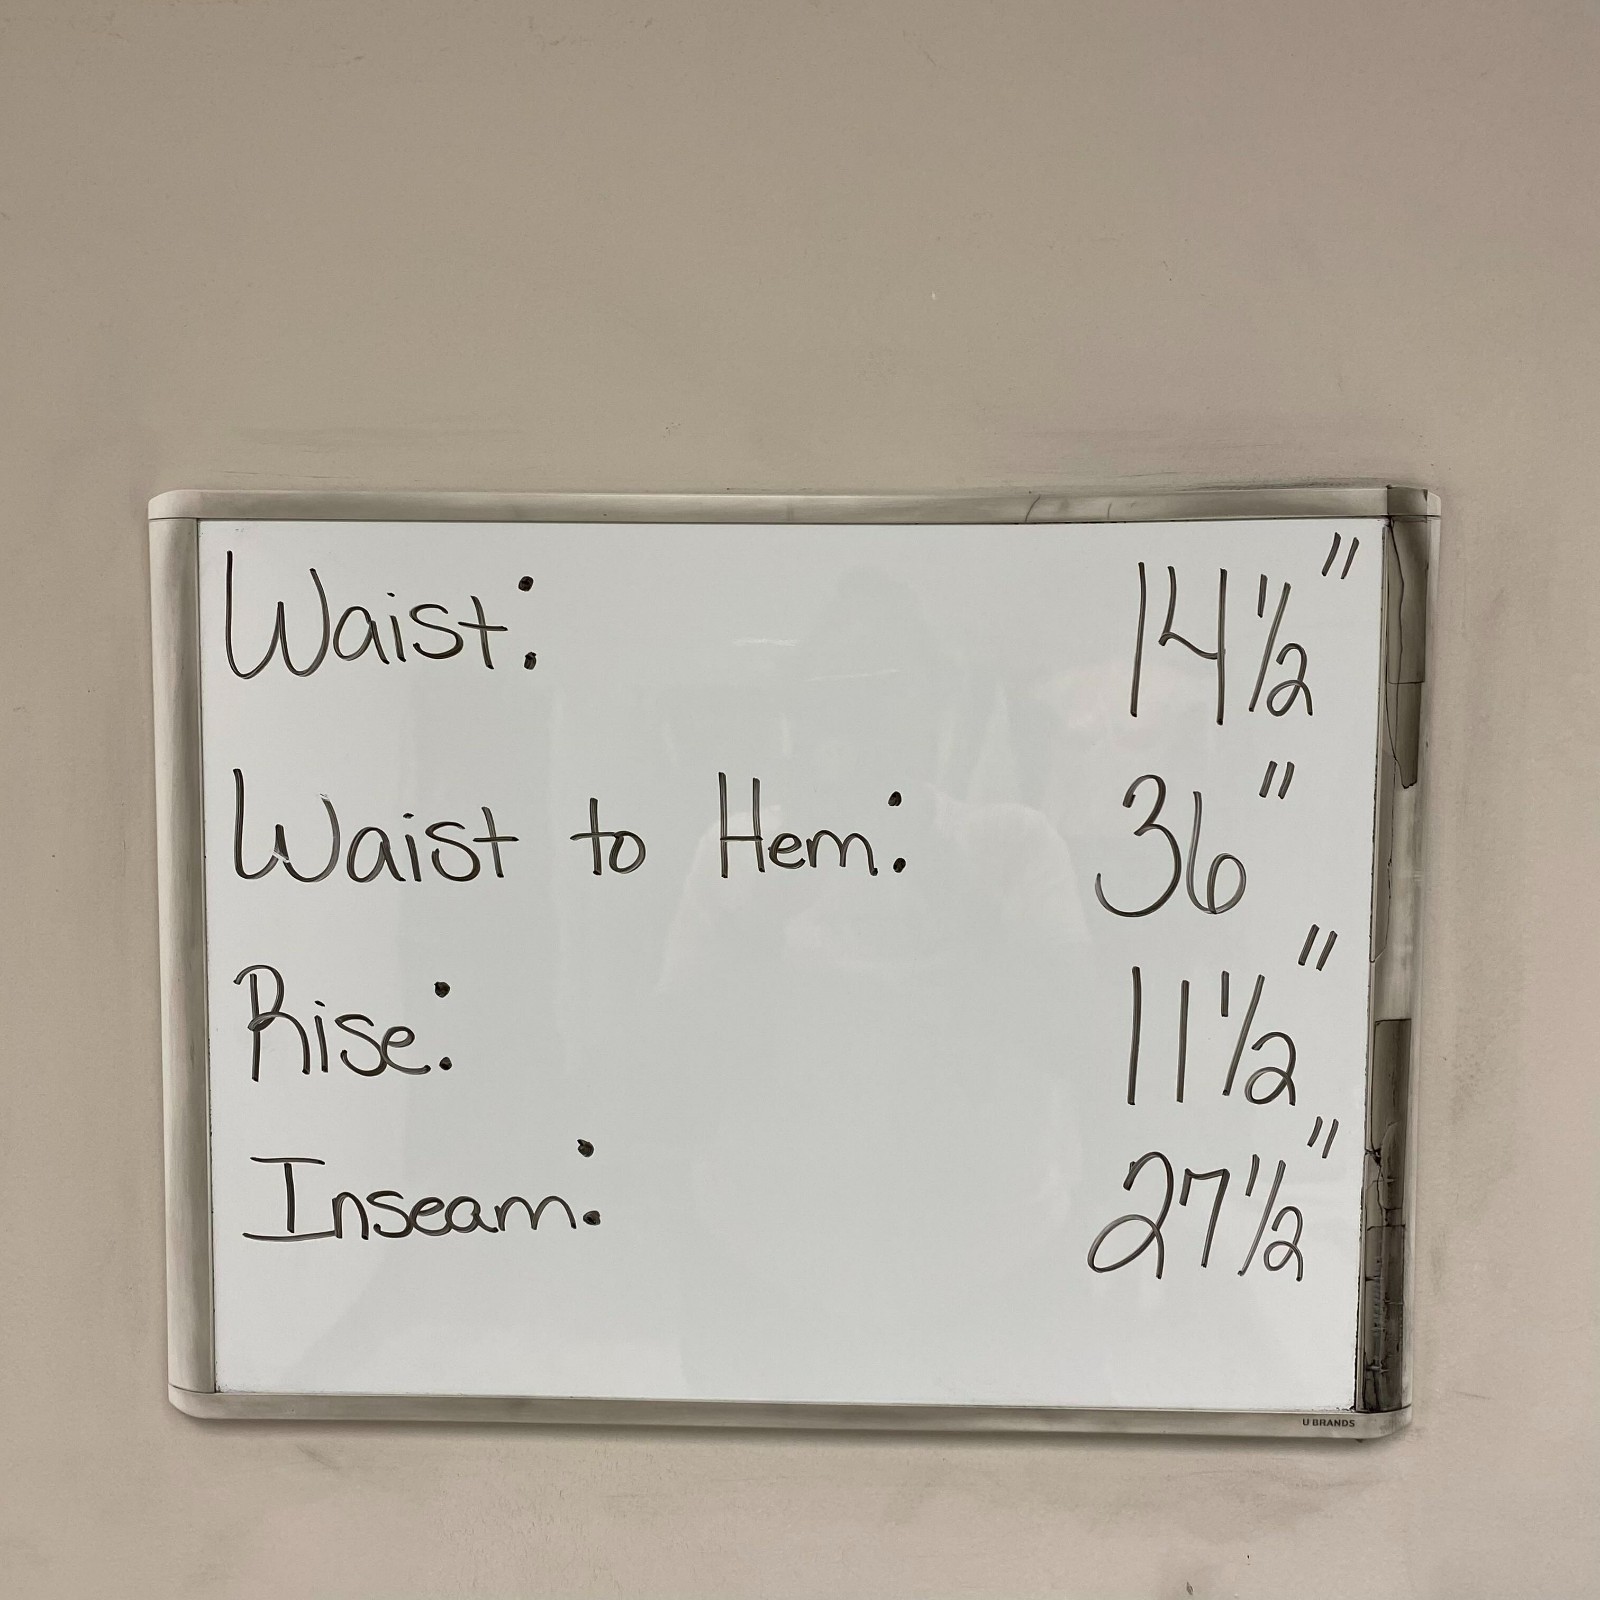 Waist: 14 1/2"
Waist to Hem: 36"
Rise: 11 1/2"
Inseam: 27 1/2"
U BRANDS